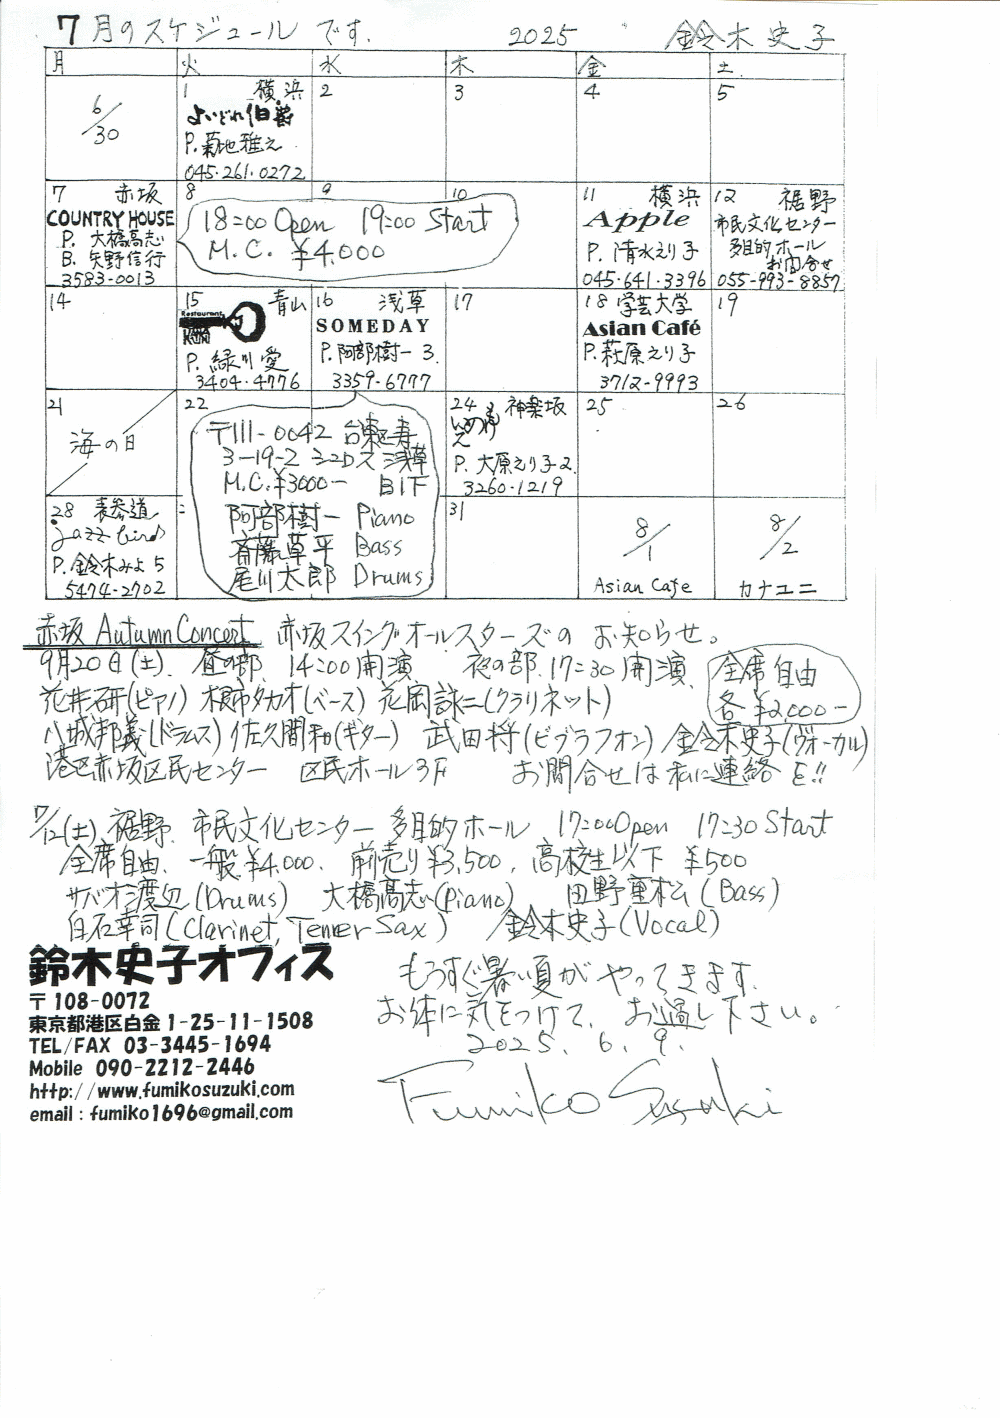 7月のスケジュール です. 2025 鈴木史子
月 火 水 木 金 土
6/30
1 横浜
よいどれ伯爵
P. 菊地雅之
045·261·0272
2
3
4
5
7 赤坂
COUNTRY HOUSE
P. 大橋高志
B. 矢野信行
3583-0013
8
9
10
18=00 Open 19=00 Start
M.C. ¥4,000
11 横浜
Apple
P. 清水えり子
045·641·3396
12 裾野
市民文化センター
多目的ホール
お問合せ
055-993-8857
14
15 青山
Restaurant
P. 緑川愛
3404-4776
16 浅草
SOMEDAY
P. 阿部樹一 3.
3359-6777
17
18 学芸大学
Asian Café
P. 萩原えり子
3712-9993
19
21
海の日
22
〒111-0042 台東区寿
3-19-2 シュロス浅草
M.C. ¥3000- B1F
阿部樹一 Piano
斉藤草平 Bass
尾川太郎 Drums
24 神楽坂
もりのいえ
P. 大原えり子 2.
3260·1219
25
26
28 表参道
Jazz bird
P. 鈴木みよ 5
5474-2702
31
8/1
Asian Cafe
8/2
カナユニ
赤坂 Autumn Concert 赤坂スイングオールスターズの お知らせ。
9月20日(土). 昼の部 14=00開演 夜の部. 17=30開演.
全席自由
各¥2,000-
花井研(ピアノ) 根市タカオ(ベース) 花岡詠二(クラリネット)
八城邦義(ドラムス) 佐久間和(ギター) 武田将(ビブラフォン) 鈴木史子(ヴォーカル)
港区赤坂区民センター 区民ホール3F お問合せは私に連絡を!!
7/12(土) 裾野. 市民文化センター 多目的ホール 17=00Open 17=30 Start
全席自由. 一般¥4,000. 前売り¥3,500, 高校生以下 ¥500
サバオ渡辺(Drums) 大橋高志(piano) 田野重松(Bass)
白石幸司(Clarinet, Tenner Sax) 鈴木史子(Vocal)
鈴木史子オフィス
〒108-0072
東京都港区白金1-25-11-1508
TEL/FAX 03-3445-1694
Mobile 090-2212-2446
http://www.fumikosuzuki.com
email : fumiko1696@gmail.com
もうすぐ暑い夏がやってきます.
お体に気をつけて. お過し下さい。
2025. 6. 9.
Fumiko Suzuki